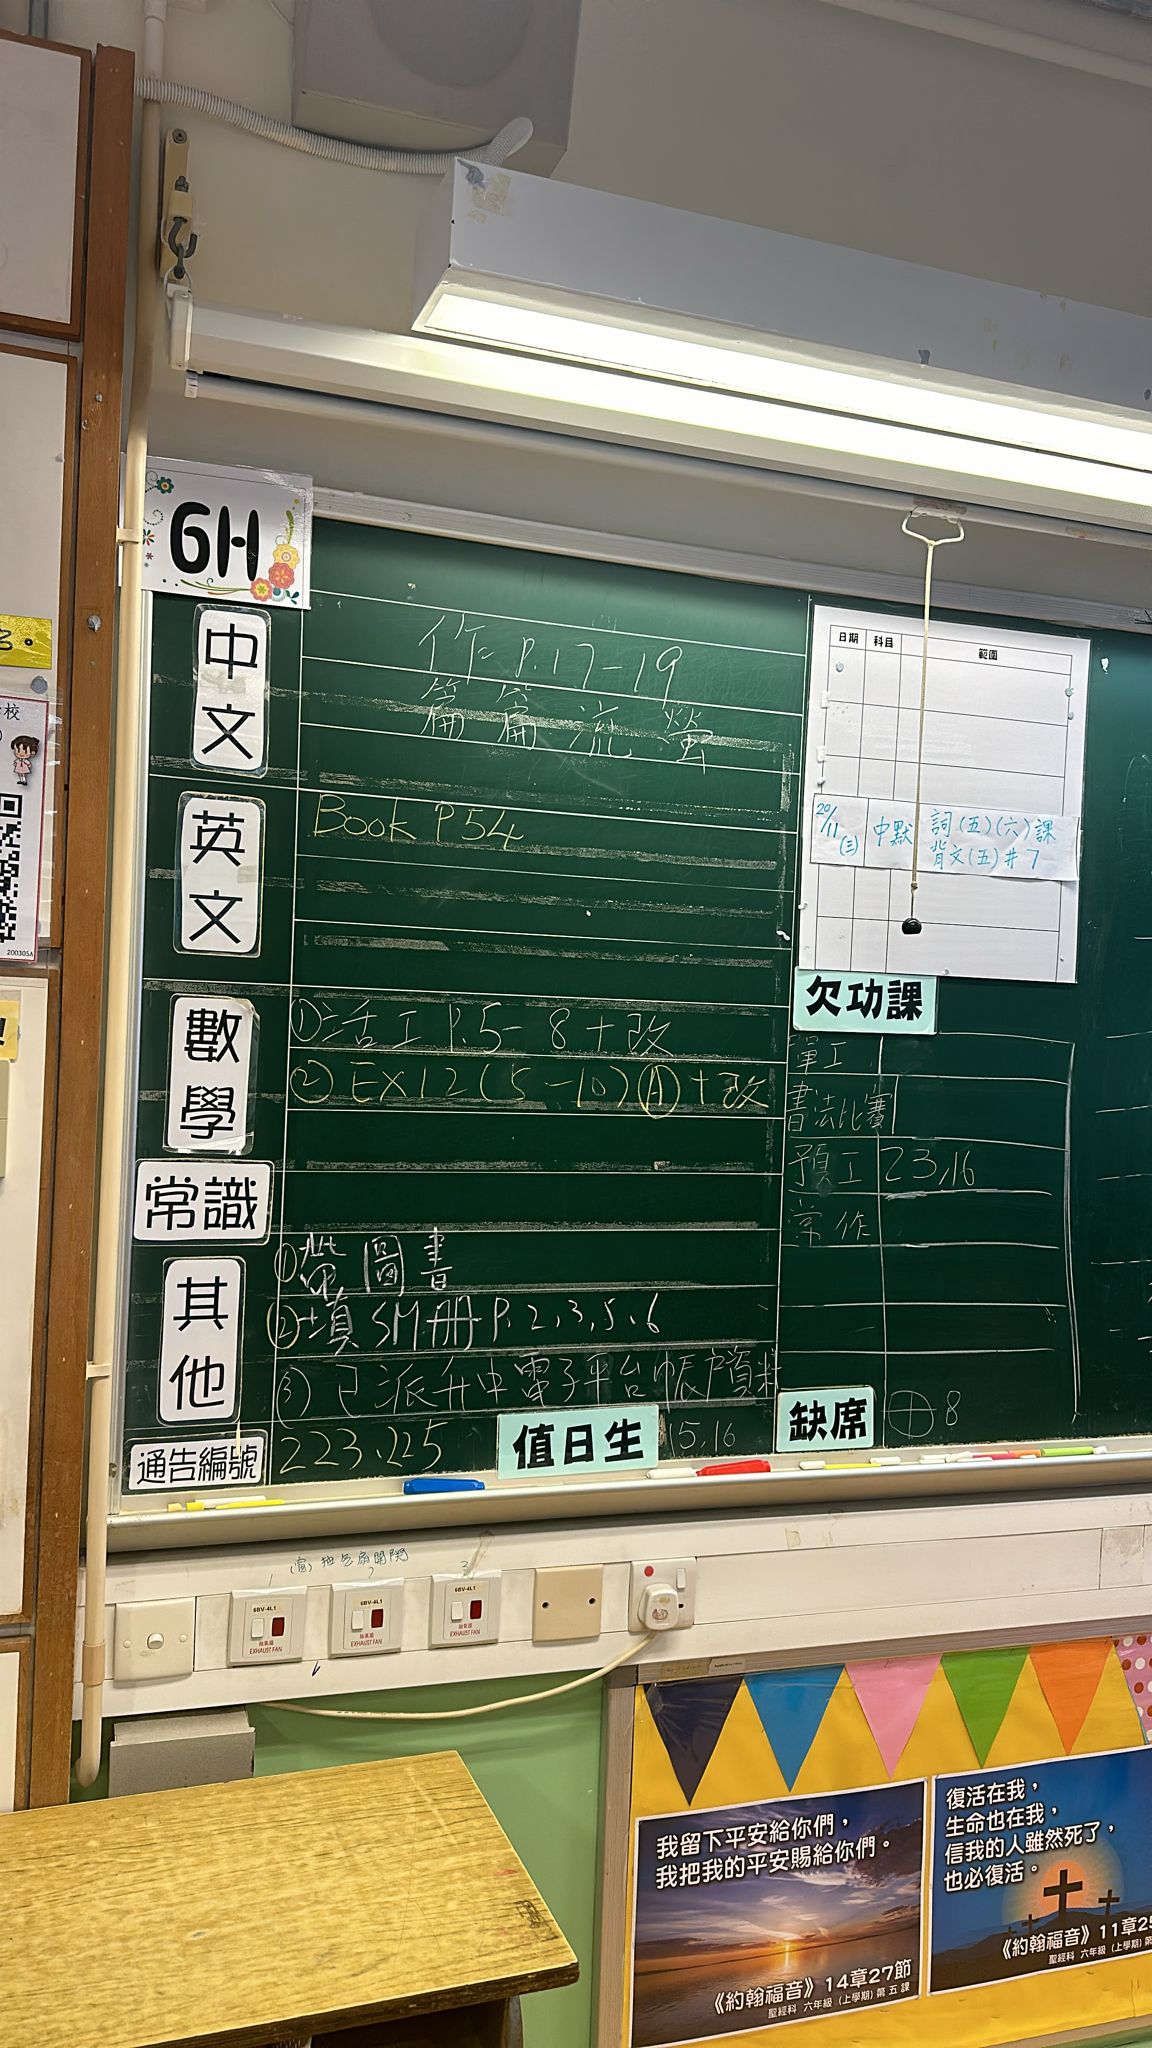 6H
中文
作 P.17-19
篇篇流螢
英文
Book P54
數學
①活工 P.5-8+改
②EX12(5-10)Ⓐ+改
常識
其他
①帶圖書
②填SM冊P.2,3,5,6
③已派升中電子平台帳戶資料
通告編號
223、225
值日生
15,16
日期 科目 範圍
20/11(三) 中默 詞(五)(六)課
背文(五)#7
欠功課
單工
書法比賽
預工 23,16
常作
缺席
8
校
200305A
1 2 3
6BV-4L1
抽氣扇
EXHAUST FAN
6BV-4L1
抽氣扇
EXHAUST FAN
6BV-4L1
抽氣扇
EXHAUST FAN
我留下平安給你們，
我把我的平安賜給你們。
《約翰福音》14章27節
聖經科 六年級（上學期）第五課
復活在我，
生命也在我，
信我的人雖然死了，
也必復活。
《約翰福音》11章25
聖經科 六年級（上學期）第